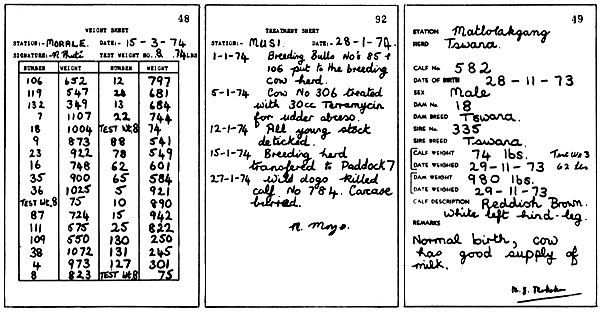 48
WEIGHT SHEET
STATION:- MORALE. DATE:- 15-3-74.
SIGNATURE:- TEST WEIGHT NO. 8. 74 LBS
NUMBER WEIGHT NUMBER WEIGHT
106 652 12 797
119 547 28 681
132 349 13 684
7 1107 22 744
18 1004 TEST Wt.8 74
9 873 88 541
23 922 78 549
16 748 62 601
35 900 65 584
36 1025 5 921
TEST Wt.8 75 10 890
87 724 15 942
111 575 25 822
109 550 130 250
38 1072 131 245
4 973 127 301
8 823 TEST Wt.8 75
92
TREATMENT SHEET
STATION:- MUSI. DATE:- 28-1-74.
1-1-74 Breeding Bulls No's 85 +
106 put to the breeding
cow herd.
5-1-74 Cow No 306 treated
with 30cc Terramycin
for udder absess.
12-1-74 All young stock
deticked.
15-1-74 Breeding herd
transfered to Paddock 7
27-1-74 wild dogs killed
calf No 784. Carcase
burried.
R. Moyo.
49
STATION Matlolakgang
HERD Tswana.
CALF No. 582
DATE OF BIRTH 28-11-73
SEX Male
DAM No. 18
DAM BREED Tswana.
SIRE No. 335
SIRE BREED Tswana.
CALF WEIGHT 74 lbs. Test Wt 3
DATE WEIGHED 29-11-73 62 lbs
DAM WEIGHT 980 lbs.
DATE WEIGHED 29-11-73
CALF DESCRIPTION Reddish Brown.
White left hind-leg.
REMARKS
Normal birth, cow
has good supply of
milk.